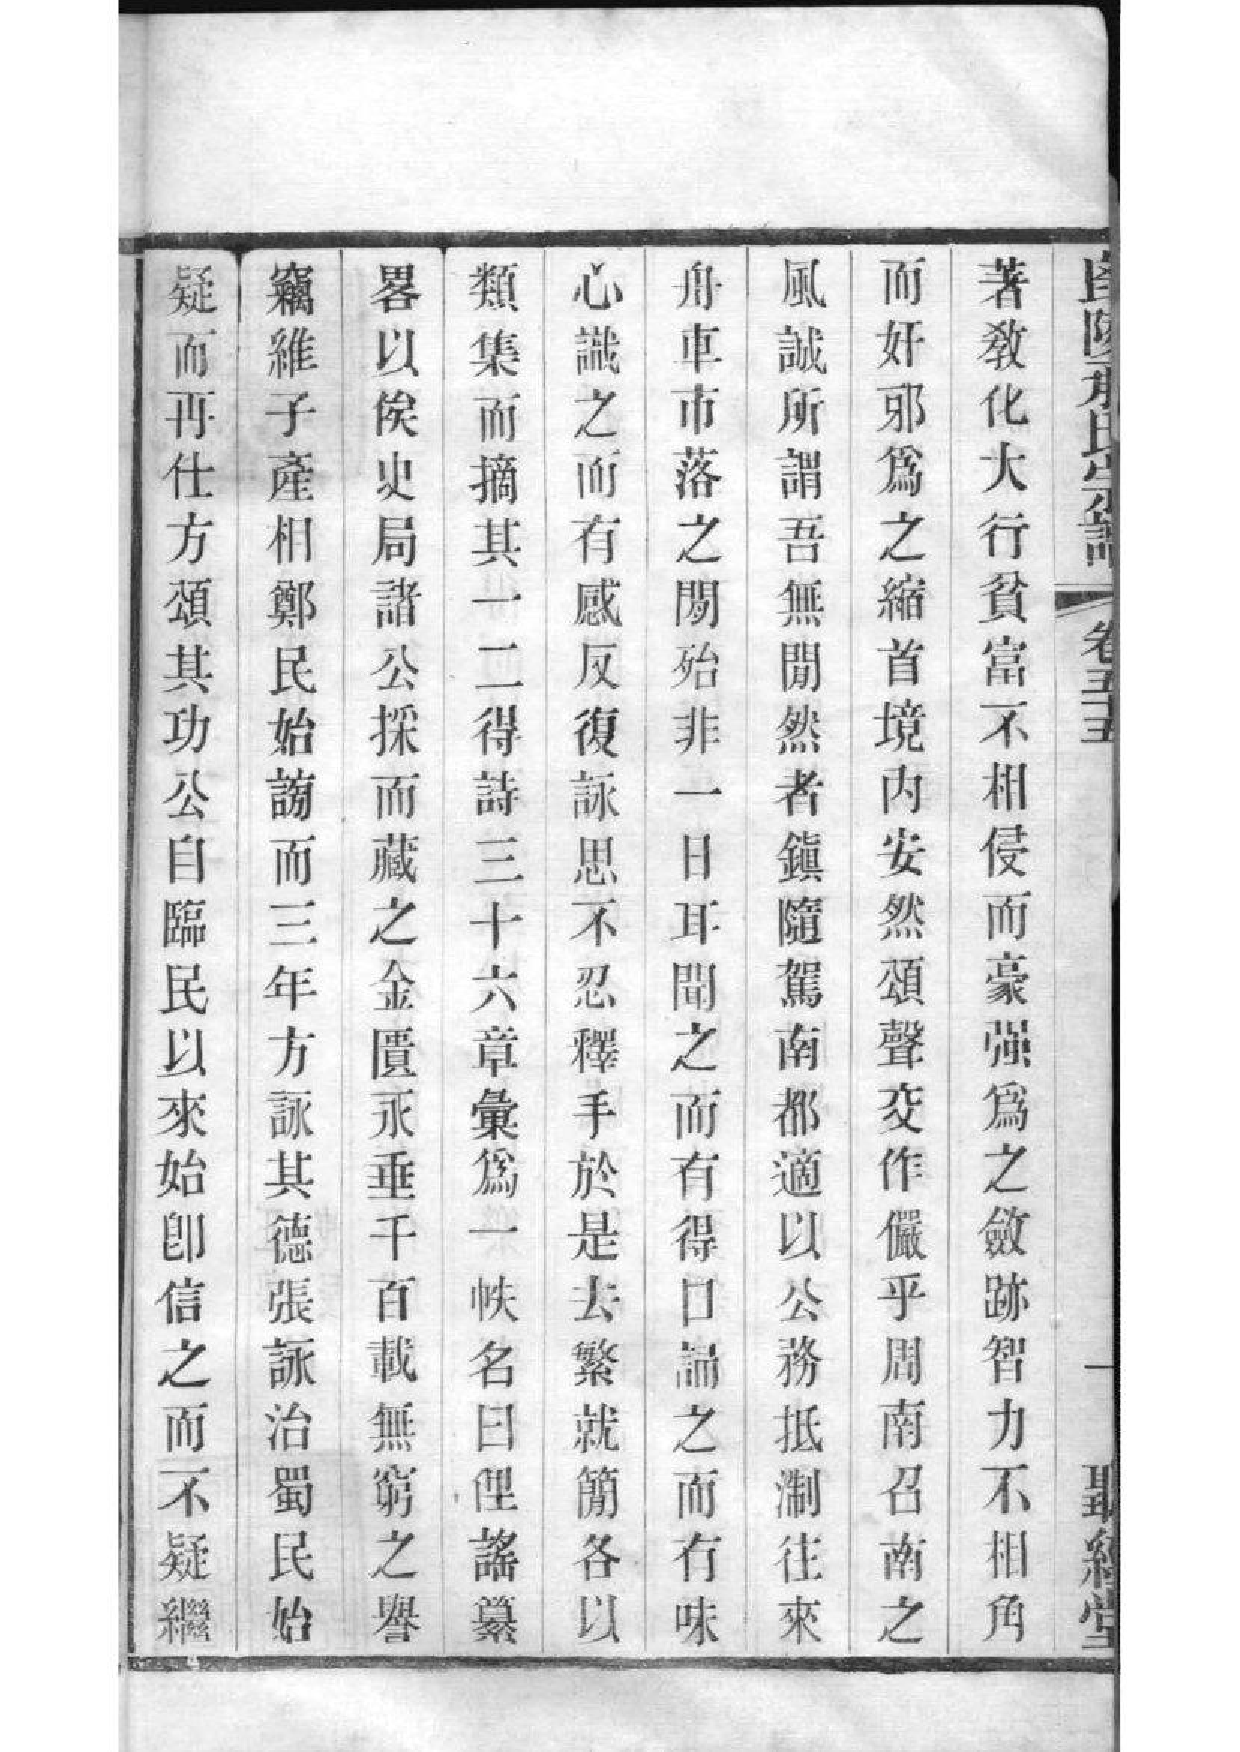 著敎化大行貧富不相侵而豪强爲之斂跡智力不相角
而奸邪爲之縮首境内安然頌聲交作儼乎周南召南之
風誠所謂吾無閒然者鎭隨駕南都適以公務抵淛往來
舟車市落之閒殆非一日耳聞之而有得口誦之而有味
心識之而有感反復詠思不忍釋手於是去繁就簡各以
類集而摘其一二得詩三十六章彙爲一帙名曰俚謠纂
畧以俟史局諸公採而藏之金匱永垂千百載無窮之譽
竊維子產相鄭民始謗而三年方詠其德張詠治蜀民始
疑而再仕方頌其功公自臨民以來始卽信之而不疑繼
卷五十五
一